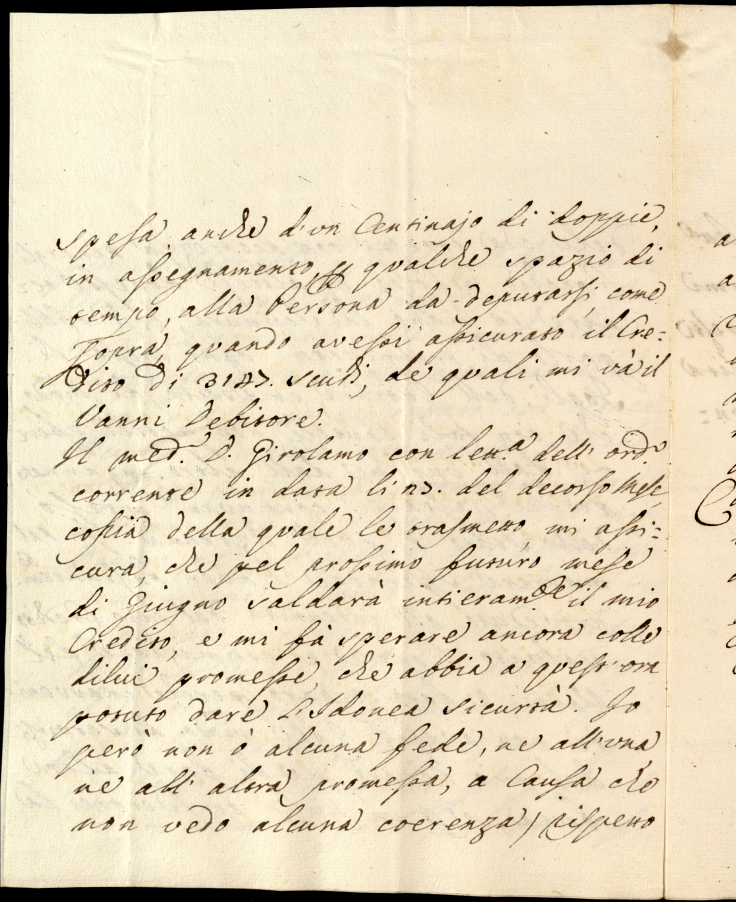 spesa anche d'un Centinajo di doppie,
in assegnamento, p qualche spazio di
tempo, alla Persona da deputarsi, come
sopra, quando avessi assicurato il Cre=
dito di scudi, de quali mi và il
Vanni Debitore.
Il med.º D. Girolamo con lettª dell' ordº
corrente in data li 23. del decorso Mese
copia della quale le trasmetto, mi assi=
cura, che pel prossimo futuro mese
di Giugno salderà intieramte il mio
Credito, e mi fà sperare ancora colle
dilui promesse, che abbia a quest'ora
potuto dare l'Idonea sicurtà. Io
però non ò alcuna fede, ne all'una
ne all' altra promessa, a Causa che
non vedo alcuna coerenza, rispetto